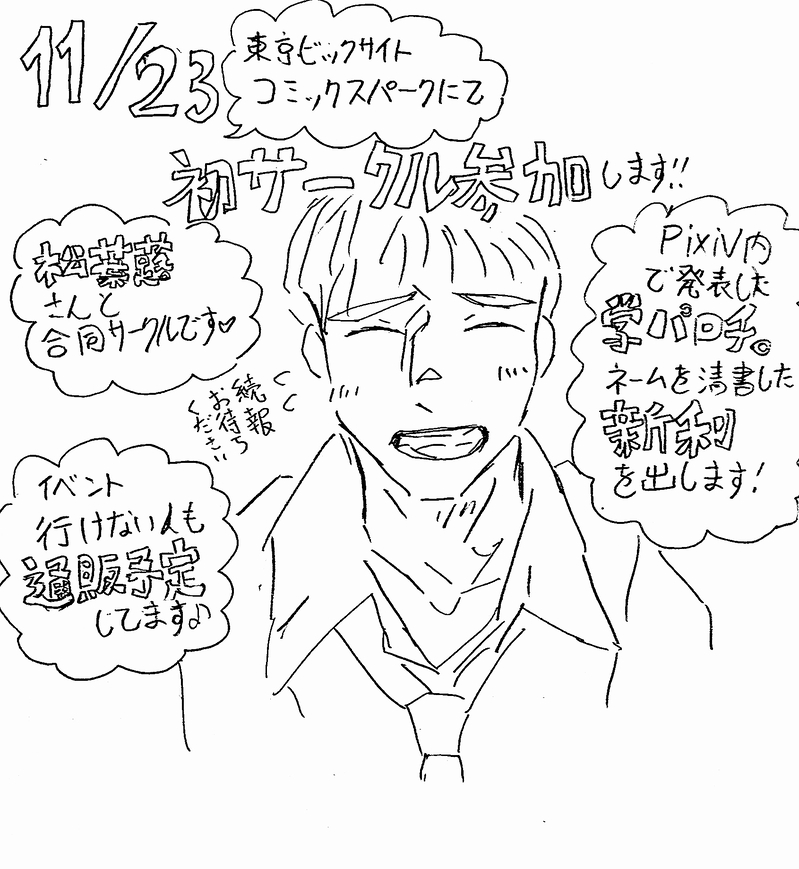 11/23
東京ビックサイト
コミックスパークにて
初サークル参加します!!
松葉惑
さんと
合同サークルです♡
Pixiv内
で発表した
学パロチ。
ネームを清書した
新刊
を出します!
続報
お待ち
ください
イベント
行けない人も
通販予定
してます♪